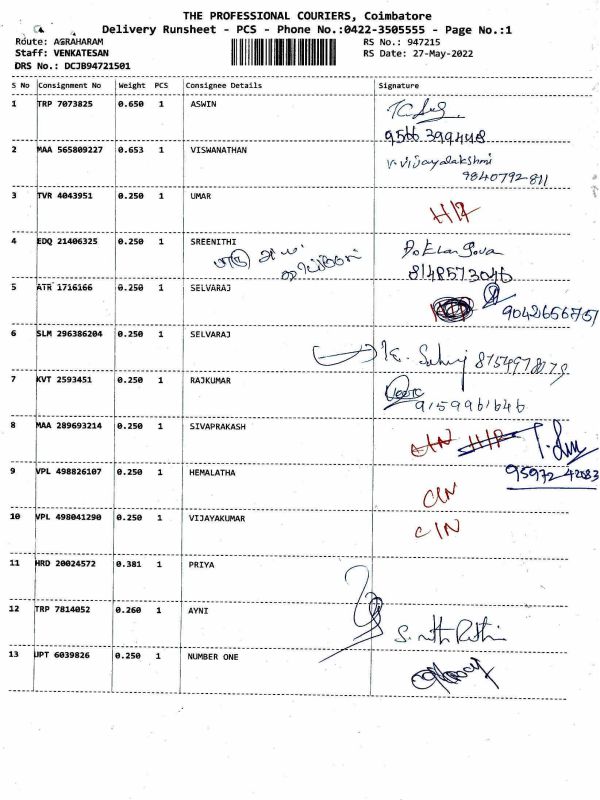 THE PROFESSIONAL COURIERS, Coimbatore
Delivery Runsheet - PCS - Phone No.:0422-3505555 - Page No.:1
Route: AGRAHARAM RS No.: 947215
Staff: VENKATESAN RS Date: 27-May-2022
DRS No.: DCJB94721501
S No Consignment No Weight PCS Consignee Details Signature
1 TRP 7073825 0.650 1 ASWIN
9566 399448
2 MAA 565809227 0.653 1 VISWANATHAN V. Vijayalakshmi
9840792811
3 TVR 4043951 0.250 1 UMAR
4 EDQ 21406325 0.250 1 SREENITHI
8148573046
5 ATR 1716166 0.250 1 SELVARAJ
9042656757
6 SLM 296386204 0.250 1 SELVARAJ
7 KVT 2593451 0.250 1 RAJKUMAR
9159961646
8 MAA 289693214 0.250 1 SIVAPRAKASH
95972 42083
9 VPL 498826107 0.250 1 HEMALATHA
CIN
10 VPL 498041290 0.250 1 VIJAYAKUMAR CIN
11 HRD 20024572 0.381 1 PRIYA
12 TRP 7814052 0.260 1 AYNI
13 UPT 6039826 0.250 1 NUMBER ONE